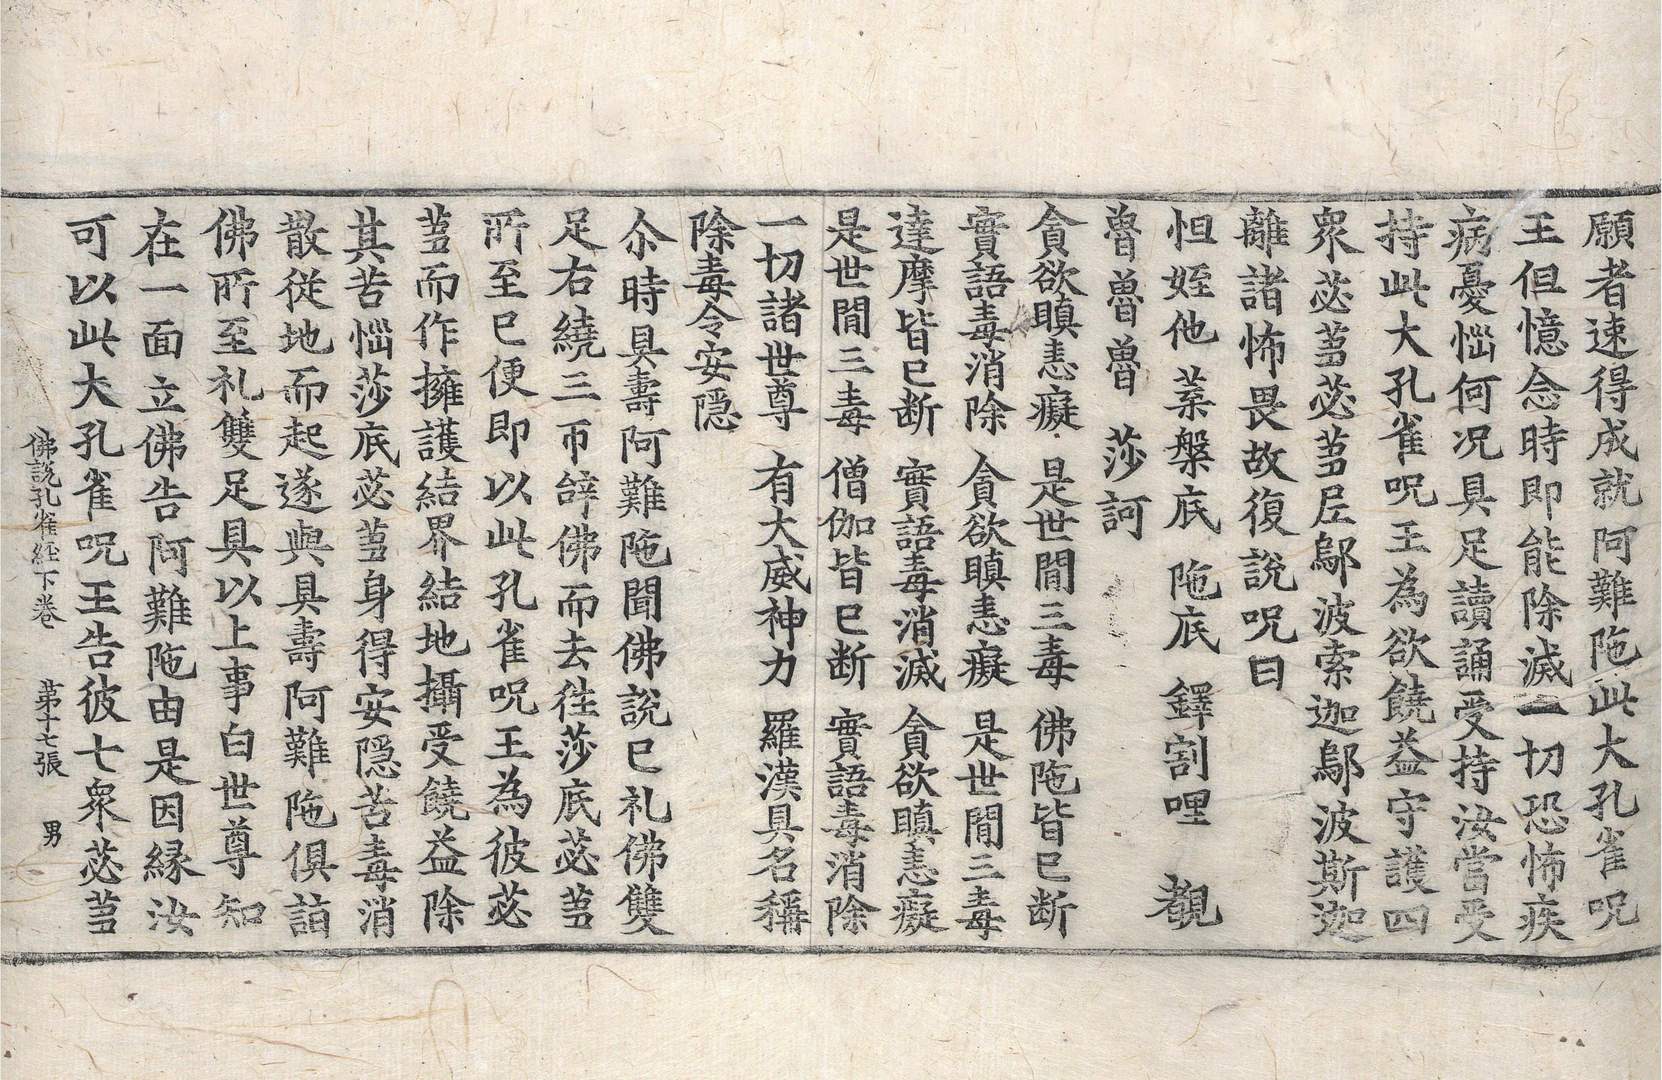 願者速得成就阿難陁此大孔雀呪
王但憶念時即能除滅一切恐怖疾
病憂惱何况具足讀誦受持汝當受
持此大孔雀呪王為欲饒益守護四
衆苾蒭苾蒭尼鄔波索迦鄔波斯迦
離諸怖畏故復說呪曰
怛姪他 蘂槃底 陁底 鐸割哩 覩
魯魯魯魯 莎訶
貪欲瞋恚癡 是世間三毒 佛陁皆已断
實語毒消除 貪欲瞋恚癡 是世間三毒
達摩皆已断 實語毒消滅 貪欲瞋恚癡
是世間三毒 僧伽皆已断 實語毒消除
一切諸世尊 有大威神力 羅漢具名稱
除毒令安隠
尒時具壽阿難陁聞佛說已礼佛雙
足右繞三帀辝佛而去徃莎底苾蒭
所至已便即以此孔雀呪王為彼苾
蒭而作擁護結界結地攝受饒益除
其苦惱莎底苾蒭身得安隠苦毒消
散從地而起遂與具壽阿難陁俱詣
佛所至礼雙足具以上事白世尊知
在一面立佛告阿難陁由是因緣汝
可以此大孔雀呪王告彼七衆苾蒭
佛說孔雀經下卷 第十七張 男